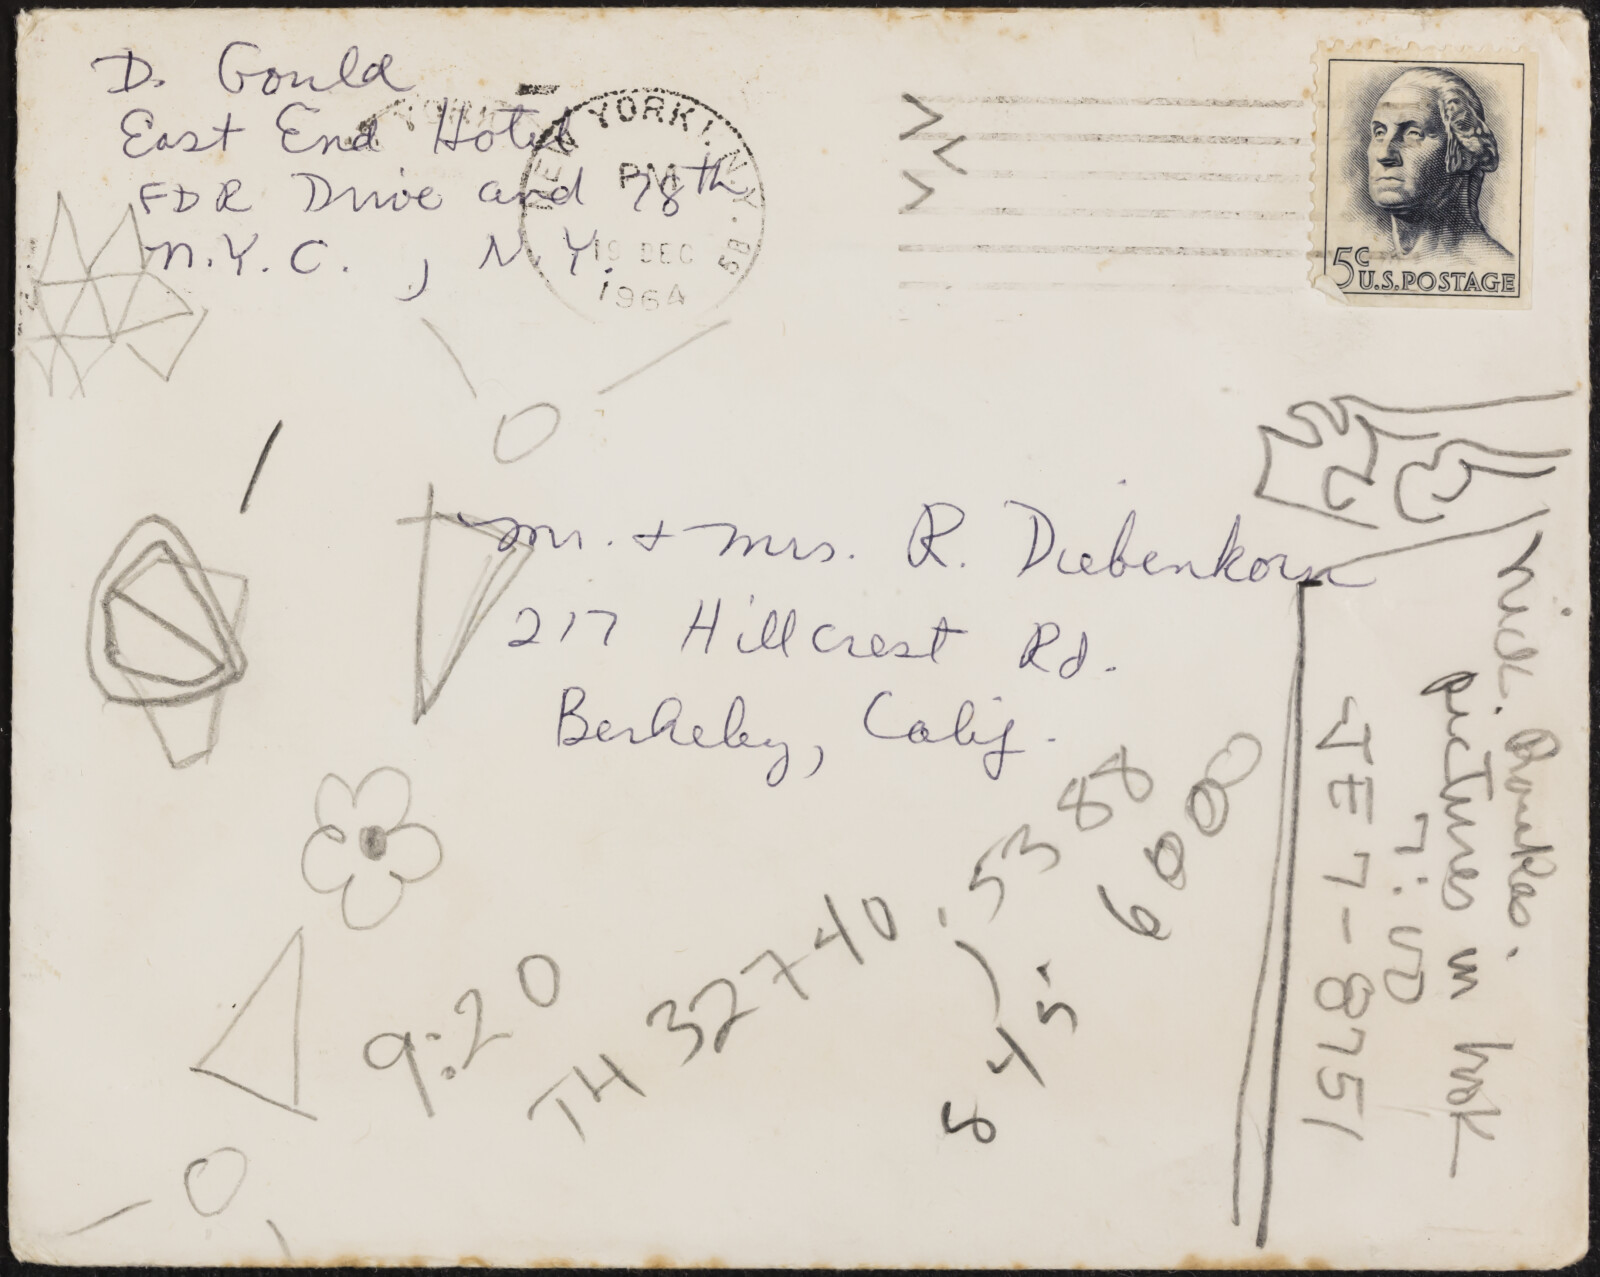 D. Gould
East End Hotel
FDR Drive and 78th
N.Y.C., N.Y.
NEW YORK 1, N.Y.
PM
19 DEC
1964
5B
5c
U.S. POSTAGE
Mr. + Mrs. R. Diebenkorn
217 Hillcrest Rd.
Berkeley, Calif.
9:20
TH 32740
.5388
6000
845
Nick.
pictures in book
7:00
JE 7-8751